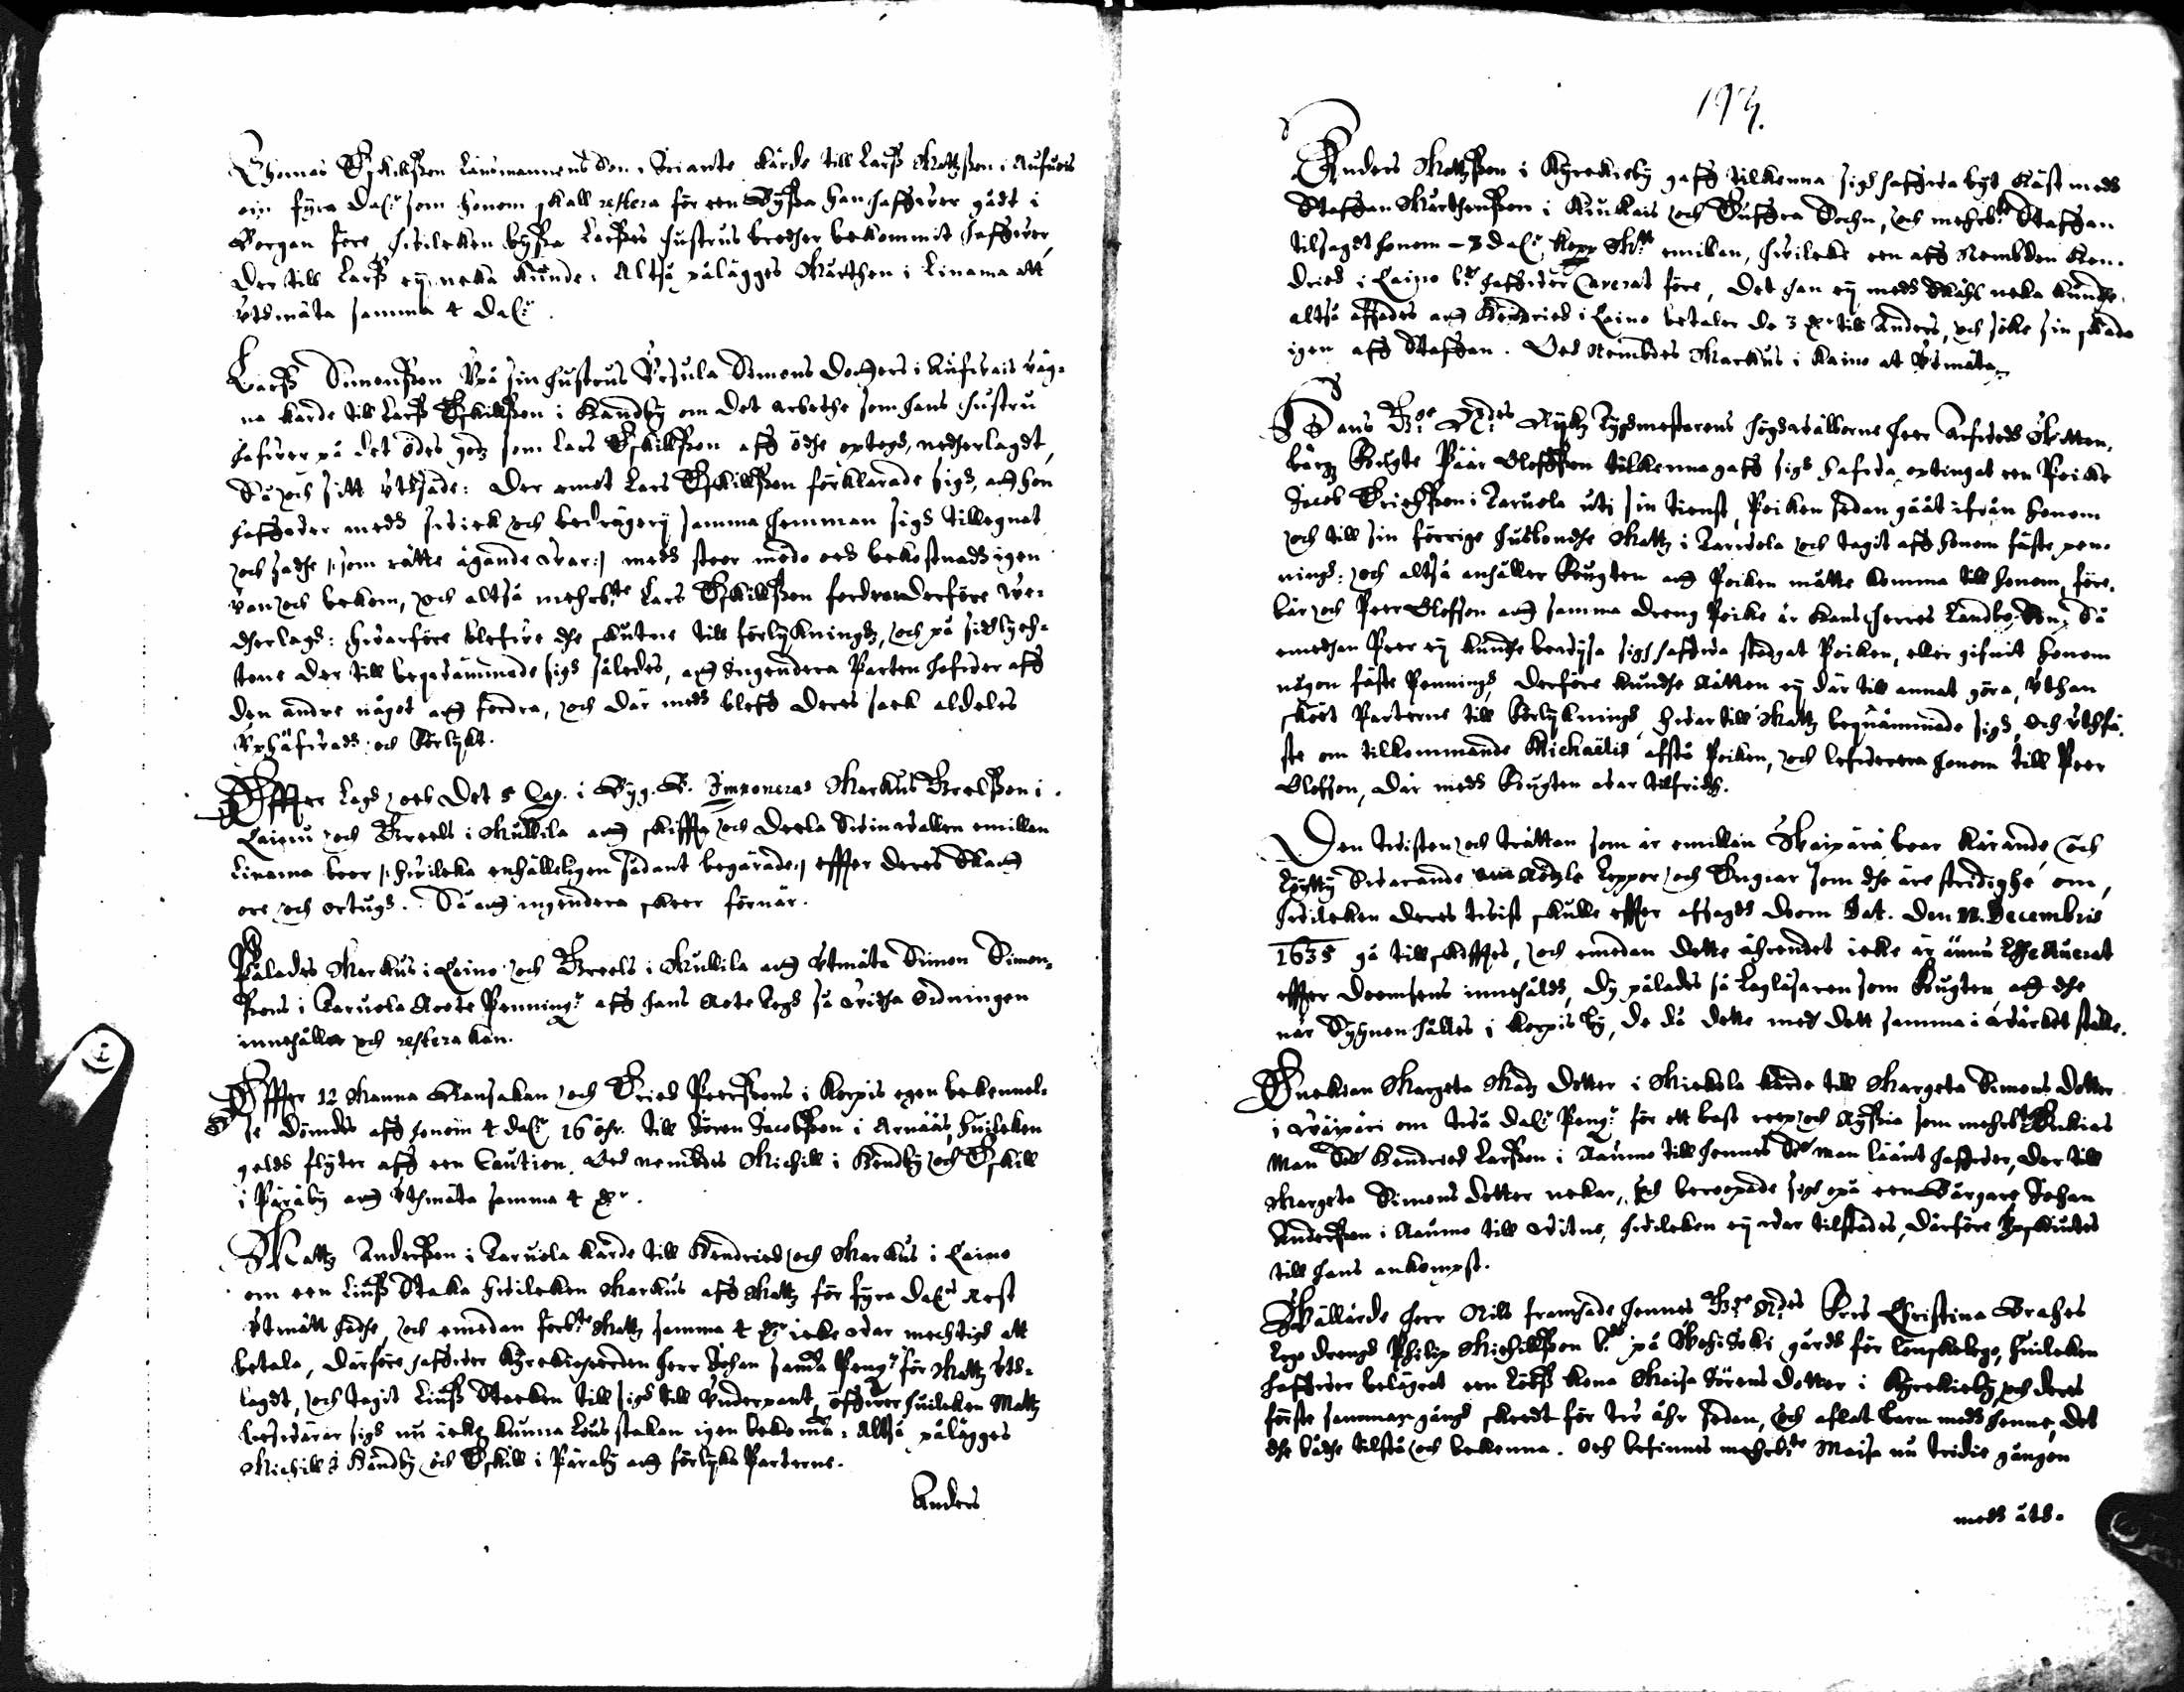 Thomas Eskillsson Länsmannens Son i Iriante kärde till Larss Mattzson i Aufuois
om fyra Dal:r som honom skall restera för een Byssa han haffver gådt i
Borgan före, hvileken byssa Larsses hustrus brodher bekommit haffver,
Der till Larss ey neka kunde: Altså pålägges Mårthen i Linama att
Utmäta samma 4 Dal:r.
Larss Simonsson Upå sin hustrus Ursula Simons Dotters i Aufvais väg-
na kärde till Larss Eskillsson i Kandby om det arbethe som hans hustru
hafver på det ödes godz som Lars Eskillsson aff ödhe optogh, nedherlagdt,
Så och sitt Utsäde: Der emot Lars Eskillsson förklarade sigh, att hon
haffver medh sviek och bedrägerij samma hemman sigh tillegnat
och hadhe /: som rätte ägande var :/ medh stoor mödo och bekostnadh igen
van och bekom, och altså mehrb:te Lars Eskillsson fordrar derföre ve-
dherlagh: hvarföre blefve dhe skutne till förlykningh, och på sidlych-
stone der till beqvämmade sigh således, att ingendera Parten hafver aff
den andre något att fordra, och där medh bleff deres saek aldeles
Uphäfvadh och förlykt.
Effter Lagh och Det 5 Cap. i Byg. B. Imponeras Markus Breelsson i
Laino och Breels i Mullila att skiffta och deela Svinvallen emillan
Linama boer /: hvileka enhälleligen sådant begärade :/ effter deres Skatt
öre och örtugh. Så att ingendera skeer förnär.
Pålades Markus i Laino och Breels i Mullila att Utmäta Simon Simon-
sons i Taruola Roote Penning:r aff hans Rote Lagh så vidha Ordningen
innehåller och restera kan.
Effter 12 Manna Ransakan och Erich Peerssons i Korpis egen bekennel-
se dömdes aff honom 4 dal:r 16 öhr. till Sören Jacobsson i Arnääs, huileken
geldh flyter aff een Caution. Och nembdes Michill i Kandby och Eskill
i Päräby att Uthmäta samma 4 D:r.
Mattz Andersson i Taruola kärde till Hendrich och Markus i Laino
om een Liuss Staka hvileken Markus aff Mattz för fyra Dal:r Rest
Utmätt hadhe, och emedan förb:te Mattz samma 4 D:r icke var mechtigh att
betala, Därföre haffver Kyrckioherden herr Johan samma Peng:r för Mattz Uth-
lagdt, och tagit Liuss Staeken till sigh till Underpant, öfver huileken Mattz
besvärar sigh nu icke kunna Lius stakan igen bekoma: Altså pålägges
Michill i Kandby och Eskill i Päräby att förlyka Parterne.
Anders
193.
Anders Mattzson i Kyrckieby gaff tilkenna sigh haffva byt Häst medh
Staffan Mårthensson i Kiukais och Euffra Sochn, och mehrb:te Staffan
tilsagdt honom 3 dal:r Kopp M:tt emillan, hvileke een aff Nembden Hen-
drich i Laino b:de haffver Caverat före, Det han ey medh Skähl neka kundhe,
altså affsades att Hendrich i Laino betaler de 3 D:r till Anders, och söke sin skada
igen aff Staffan. Och Nembdes Markus i Kaino at Utmäta.
Hans G:e N:des Rijks Tygmesterens högvälborne herr Arfvedh Witten-
bärgz Fougte Päär Olofsson tilkenna gaff sigh hafva, optingat een Poike
Jacob Erichsson i Taruola uti sin tienst, Poiken sedan gåt ifrån honom
och till sin förrige husbondhe Mattz i Tarvola och tagit aff honom fäste pen-
ningh: och altså anhåller Fougten att Poiken måtte komma till honom, före-
bär och Peer Olofson att samma dreng Poike är hans herres Landbo Son, Så
emedhan Peer ey kundhe bevijsa sigh haffva städgat Poiken, eller gifvit honom
någon fäste Penningh, derföre kundhe Rätten ey där till annat göra, Uthan
skööt Parterne till förlykningh, hvar till Mattz beqvämmade sigh, och Uthfä-
ste om tilkommande Michaëlis affstå Poiken, och lefverera honom till Peer
Olofson, där medh Fougten var tillfridh.
Den tvisten och trättan som är emillan Waipärä boer kärande, och
Löytty Svarande om Rotzle Lyppor och Engiar som dhe äre stridighe om,
hvileken deres tvist skulle effter affsagdh doom Dat. den 12. Decembris
1635 gå till skifftes, och emedan dette ährendet icke är ännu Effectuerat
effter doomsens innehåldh, Dy pålades så Lagläsaren som Fougten att dhe
när Synen hålles i Korpis by, de då dette med dett samma i värket ställe.
Enckian Margeta Madz Dotter i Mickola kärde till Margeta Simons Dotter
i Vaipäri om två Dal:r Peng:r för ett bast reep och Ryssia som mehrb:te Enkias
Man Sal. Hendrich Larsson i Raumo till hennes Sal. Man länt haffver, der till
Margeta Simons Dotter nekar, och beroopade sigh opå een Borgare Johan
Andersson i Raumo till vitne, hvileken ey var tilstädes, Därföre Upskiutes
till hans ankompst.
Wällärde herr Nils framhade hennes G:e N:des Frw Christina Brahes
Lego drengh Philip Michillsson b:de på Wohijoki gårdh för lönskelego, huileken
haffver belägrat een Lööss kona Maisa Sörens dotter i Kyrckieby och deras
förste samman gångh skedt för tw åhr sedan, och aflat barn medh henne, det
dhe bådhe tilstå och bekenna. Och befinnes mehrb:te Maisa nu tridie gången
medh åth-